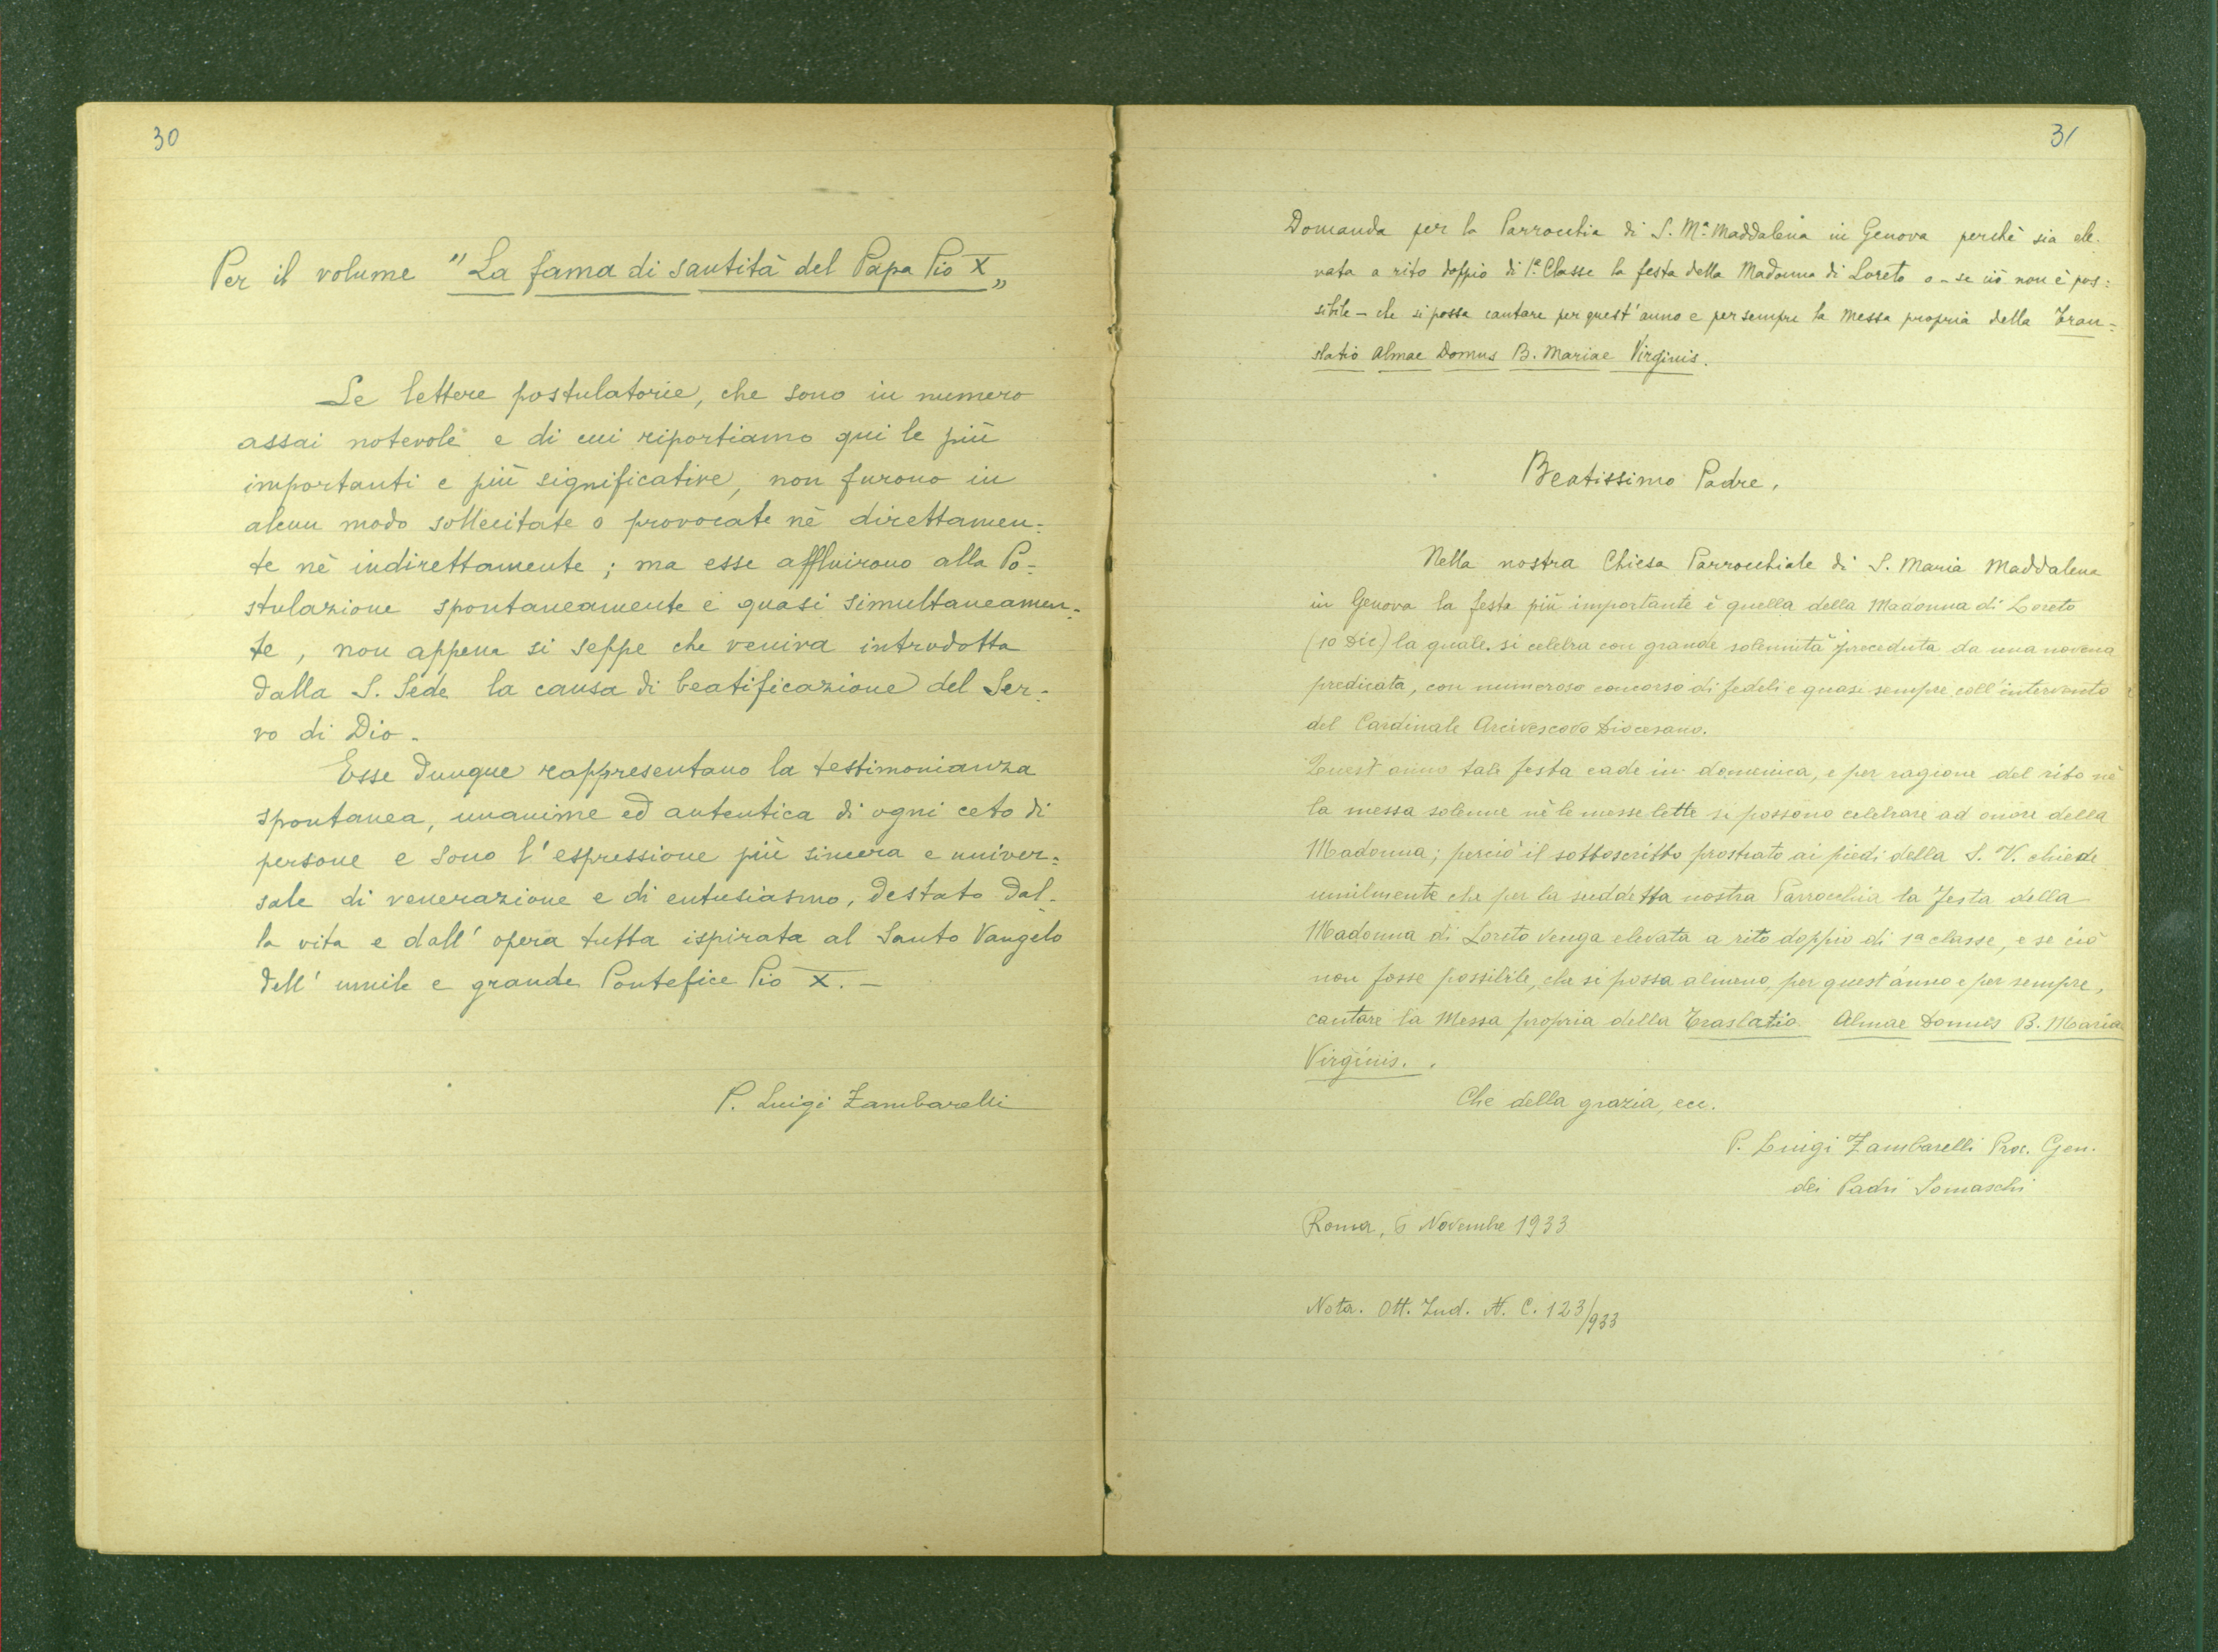 30
Per il volume "La fama di santità del Papa Pio X„
Le lettere postulatorie, che sono in numero
assai notevole e di cui riportiamo qui le più
importanti e più significative, non furono in
alcun modo sollecitate o provocate nè direttamen=
te nè indirettamente; ma esse affluirono alla Po=
stulazione spontaneamente e quasi simultaneamen=
te, non appena si seppe che veniva introdotta
dalla S. Sede la causa di beatificazione del Ser=
vo di Dio.
Esse dunque rappresentano la testimonianza
spontanea, unanime ed autentica di ogni ceto di
persone e sono l'espressione più sincera e univer=
sale di venerazione e di entusiasmo, destato dal-
la vita e dall'opera tutta ispirata al Santo Vangelo
dell'umile e grande Pontefice Pio X. —
P. Luigi Zambarelli
31
Domanda per la Parrocchia di S. Mª Maddalena in Genova perchè sia ele-
vata a rito doppio di 1ª Classe la festa della Madonna di Loreto o - se ciò non è pos=
sibile - che si possa cantare per quest'anno e per sempre la messa propria della Tran=
slatio Almae Domus B. Mariae Virginis.
Beatissimo Padre,
Nella nostra Chiesa Parrocchiale di S. Maria Maddalena
in Genova la festa più importante è quella della Madonna di Loreto
(10 Dic) la quale si celebra con grande solennità preceduta da una novena
predicata, con numeroso concorso di fedeli e quasi sempre coll'intervento
del Cardinale Arcivescovo Diocesano.
Quest'anno tale festa cade in domenica, e per ragione del rito nè
la messa solenne nè le messe lette si possono celebrare ad onore della
Madonna; perciò il sottoscritto prostrato ai piedi della S. V. chiede
umilmente che per la suddetta nostra Parrocchia la Festa della
Madonna di Loreto venga elevata a rito doppio di 1ª classe, e se ciò
non fosse possibile, che si possa almeno, per quest'anno e per sempre,
cantare la Messa propria della Traslatio Almae Domus B. Maria
Virginis.
Che della grazia, ecc.
P. Luigi Zambarelli Proc. Gen.
dei Padri Somaschi
Roma, 6 Novembre 1933
Nota. Ott. Ind. N. C. 123/933